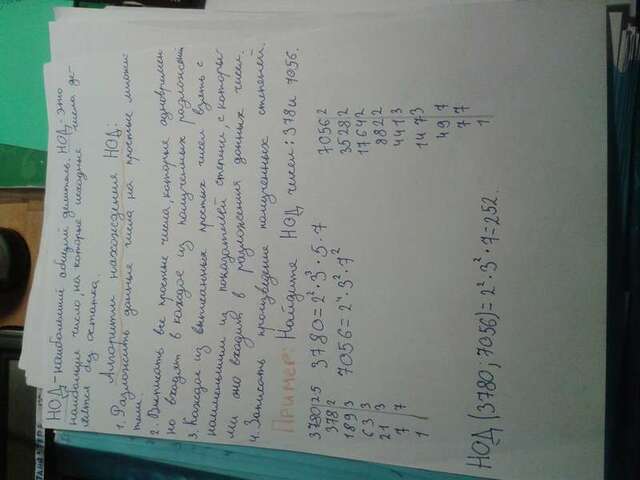 НОД - наибольший общий делитель. НОД - это
наибольшее число, на которые исходные числа де-
лятся без остатка.
Алгоритм нахождения НОД:
1. Разложить данные числа на простые множи-
тели.
2. Выписать все простые числа, которые одновремен
но входят в каждое из полученных разложений
3. Каждое из выписанных простых чисел взять с
наименьшим из показателей степени, с которы-
ми оно входит в разложения данных чисел.
4. Записать произведение полученных степеней.
Пример: Найдите НОД чисел: 378 и 7056.
3780 | 2 5
378 | 2
189 | 3
63 | 3
21 | 3
7 | 7
1 |
3780 = 2² · 3³ · 5 · 7
7056 = 2⁴ · 3² · 7²
7056 | 2
3528 | 2
1764 | 2
882 | 2
441 | 3
147 | 3
49 | 7
7 | 7
1 |
НОД (3780; 7056) = 2² · 3² · 7 = 252.